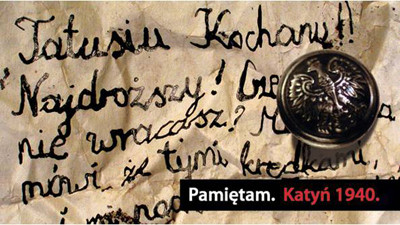 Tatusiu Kochany!!
Najdroższy!
nie wracasz?
mówi że tymi kredkami,
Pamiętam. Katyń 1940.